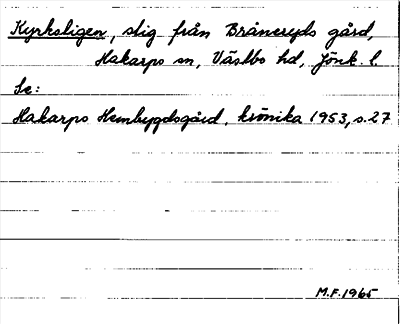 Kyrksligen, stig från Bråneryds gård,
Hakarps sn, Västbo hd, Jönk. l.
Se:
Hakarps Hembygdsgård, krönika 1953, s. 27
M.F. 1965